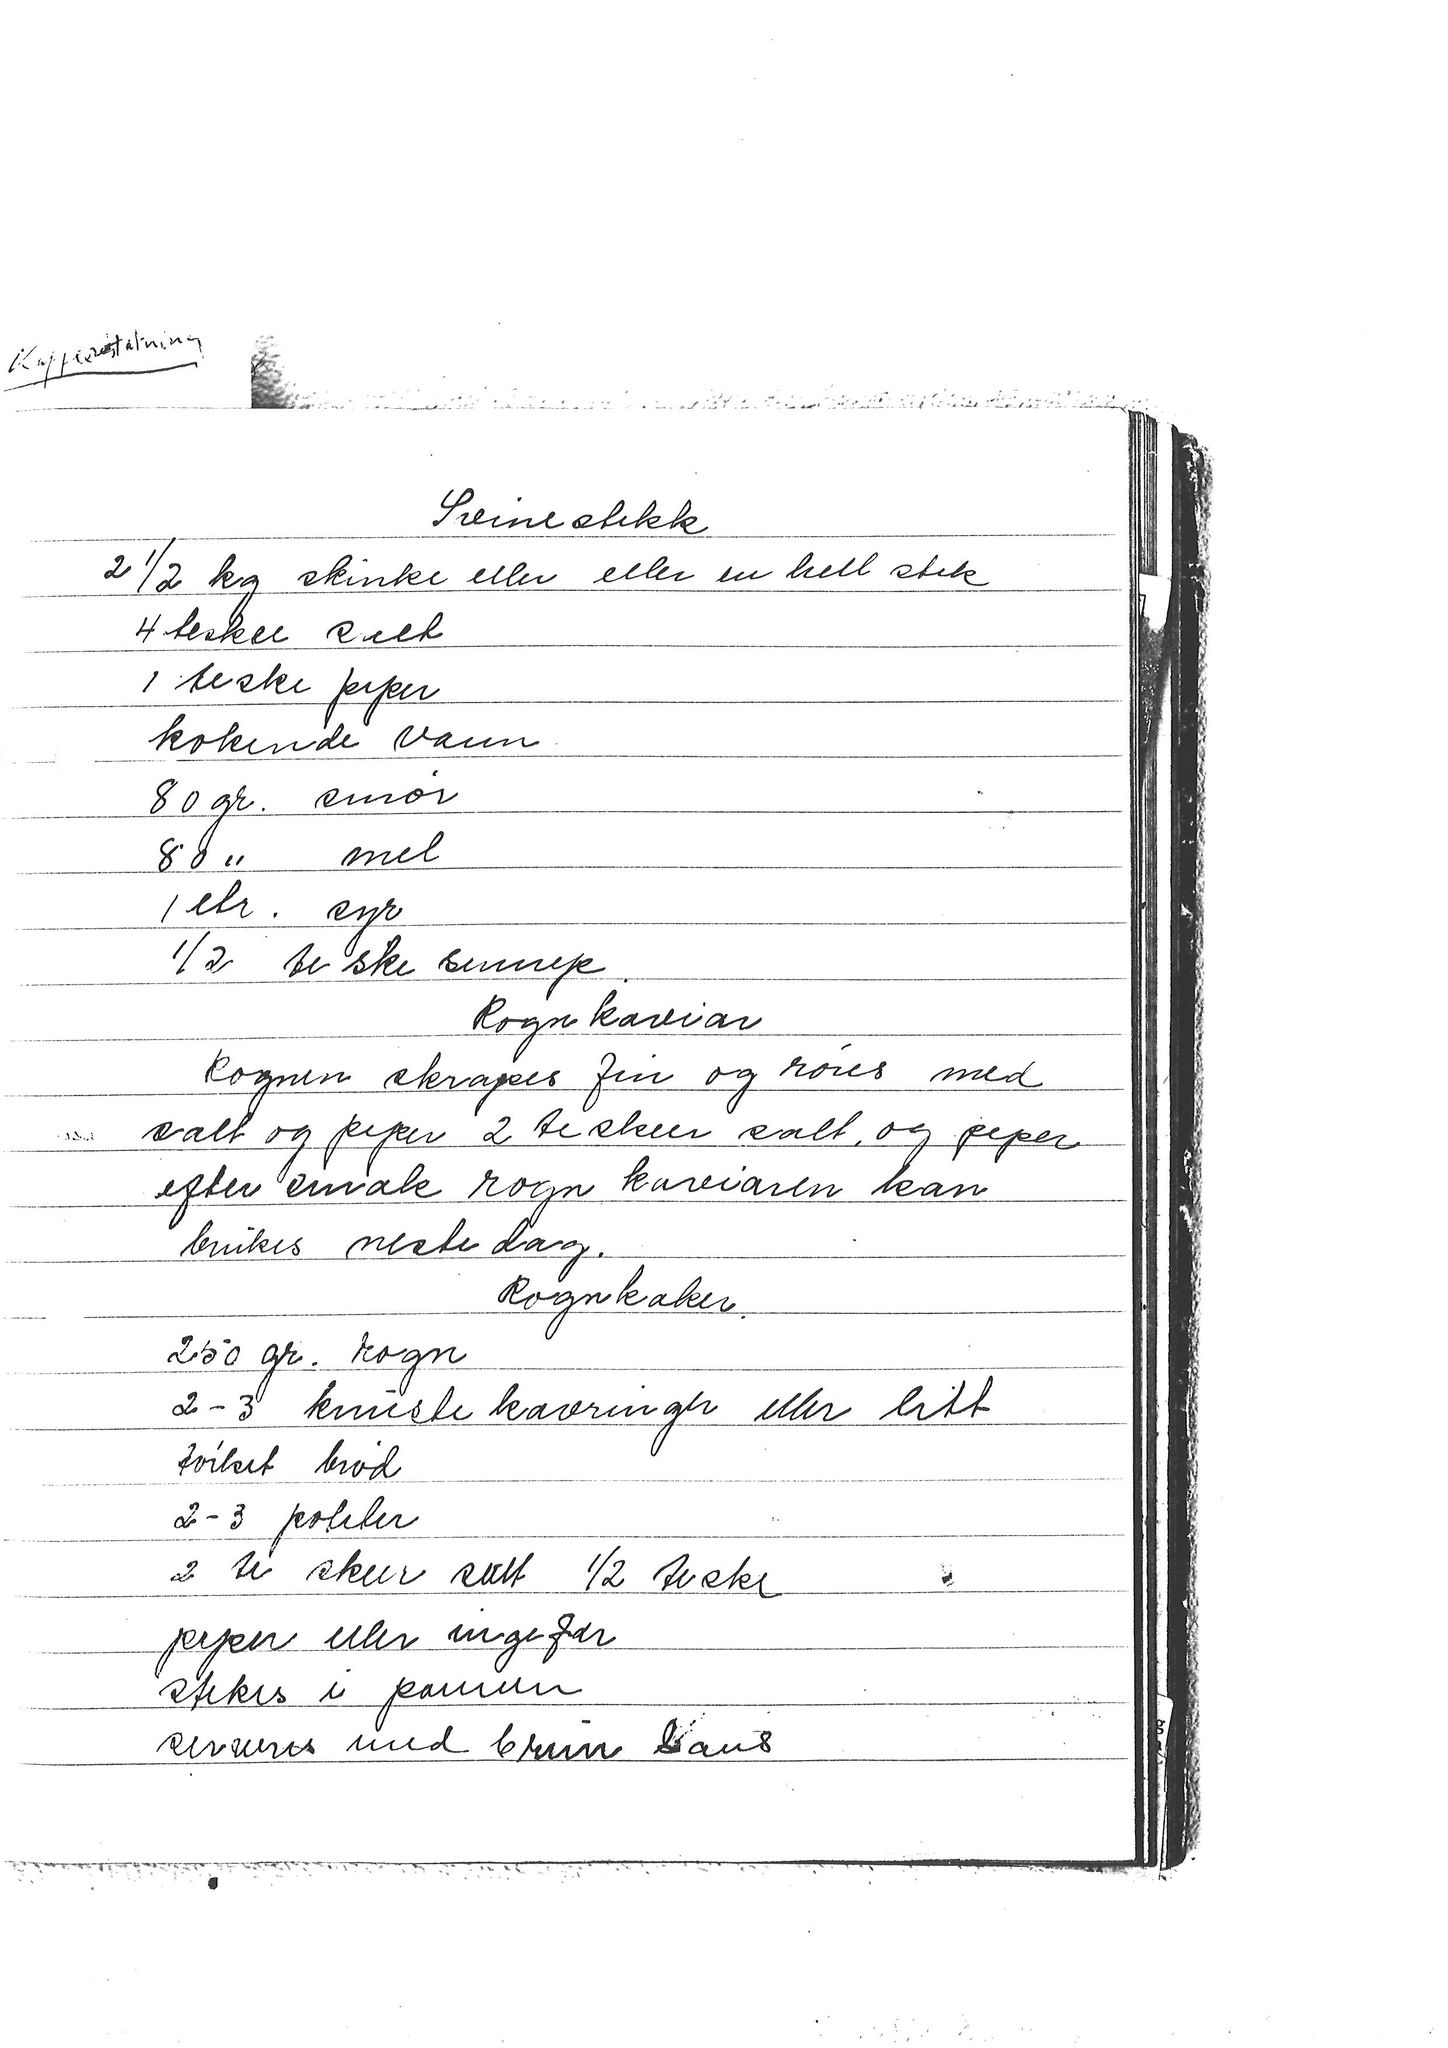 Kaffeerstatning
Svinestekk
2 1/2 kg skinke eller eller en hell stek
4 teskee salt
1 teske peper
kokende vann
80 gr. smør
80 " mel
1 ltr. syr
1/2 te ske sennep.
Rognkaviar
Rognen skrapes fin og røres med
salt og peper 2 te skeer salt, og peper
efter smak rogn kaviaren kan
brukes neste dag.
Rognkaker.
250 gr. rogn
2-3 knuste kavringer eller litt
tørket brød
2-3 poteter
2 te skeer salt 1/2 teske
peper eller ingefær
stekes i pannen
serveres med brun saus